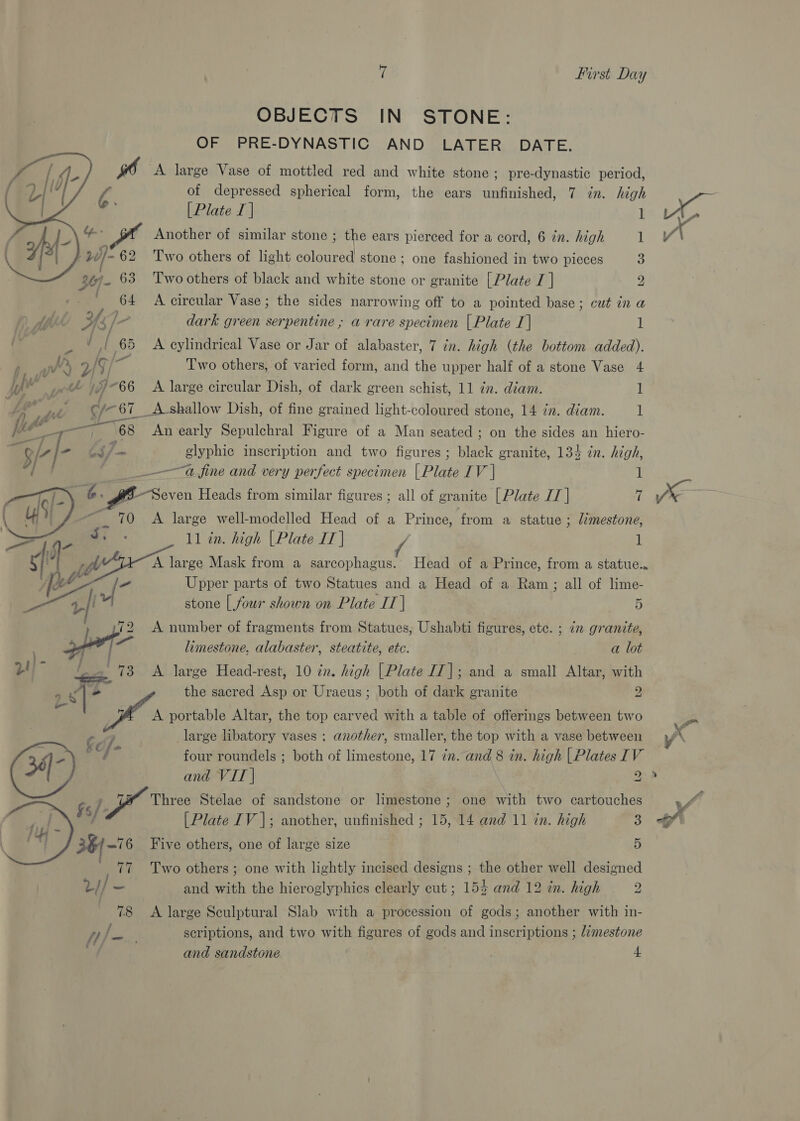 7 First Day
OBJECTS IN STONE:
OF PRE-DYNASTIC AND LATER DATE.
A large Vase of mottled red and white stone; pre-dynastic period,
of depressed spherical form, the ears unfinished, 7 in. high
[Plate I] 1
Another of similar stone; the ears pierced for a cord, 6 in. high 1
62 Two others of light coloured stone; one fashioned in two pieces 3
63 Two others of black and white stone or granite [Plate I] 2
64 A circular Vase; the sides narrowing off to a pointed base; cut in a
dark green serpentine; a rare specimen [Plate I] 1
65 A cylindrical Vase or Jar of alabaster, 7 in. high (the bottom added).
Two others, of varied form, and the upper half of a stone Vase 4
66 A large circular Dish, of dark green schist, 11 in. diam. 1
67 A shallow Dish, of fine grained light-coloured stone, 14 in. diam. 1
68 An early Sepulchral Figure of a Man seated; on the sides an hiero-
glyphic inscription and two figures; black granite, 13½ in. high,
a fine and very perfect specimen [Plate IV] 1
Seven Heads from similar figures; all of granite [Plate II] 7
70 A large well-modelled Head of a Prince, from a statue; limestone,
11 in. high [Plate II] 1
A large Mask from a sarcophagus. Head of a Prince, from a statue.
Upper parts of two Statues and a Head of a Ram; all of lime-
stone [four shown on Plate II] 5
72 A number of fragments from Statues, Ushabti figures, etc.; in granite,
limestone, alabaster, steatite, etc. a lot
73 A large Head-rest, 10 in. high [Plate II]; and a small Altar, with
the sacred Asp or Uraeus; both of dark granite 2
A portable Altar, the top carved with a table of offerings between two
large libatory vases; another, smaller, the top with a vase between
four roundels; both of limestone, 17 in. and 8 in. high [Plates IV
and VII] 2
Three Stelae of sandstone or limestone; one with two cartouches
[Plate IV]; another, unfinished; 15, 14 and 11 in. high 3
76 Five others, one of large size 5
77 Two others; one with lightly incised designs; the other well designed
and with the hieroglyphics clearly cut; 15½ and 12 in. high 2
78 A large Sculptural Slab with a procession of gods; another with in-
scriptions, and two with figures of gods and inscriptions; limestone
and sandstone 4